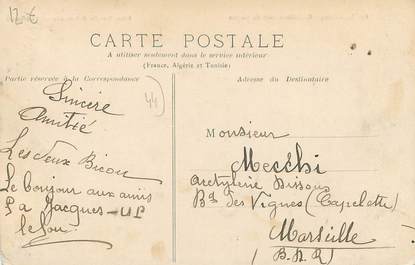 12€
CARTE POSTALE
A utiliser seulement dans le service intérieur
(France, Algérie et Tunisie)
Partie réservée à la Correspondance
Adresse du Destinataire
Sincère
Amitié
Les deux
Le bonjour aux amis
Jacques
Monsieur
Mecchi
Acetylène
Bd des Vignes (Capelette)
Marseille
(B.D.R)